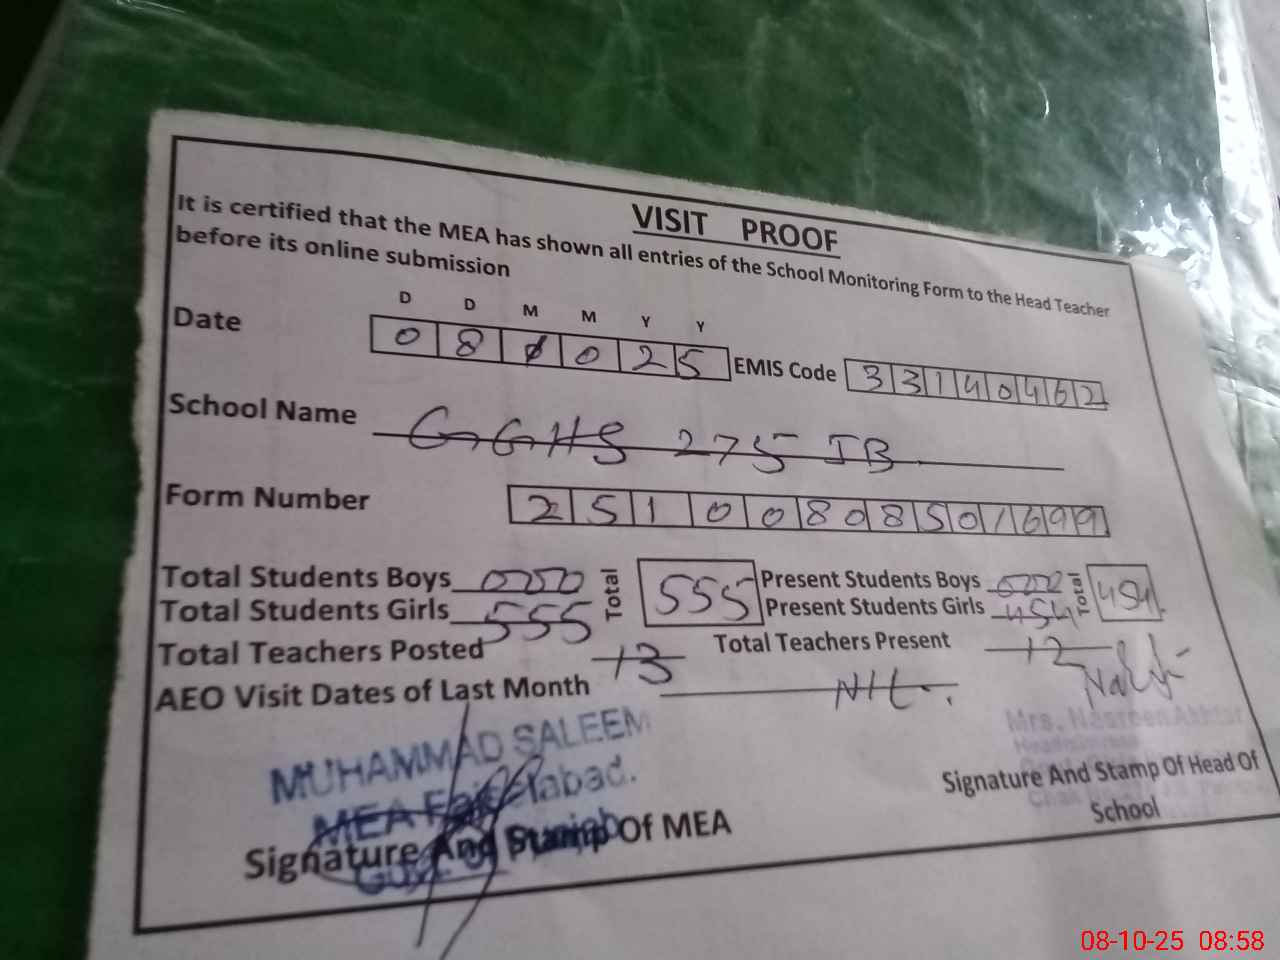 VISIT PROOF
It is certified that the MEA has shown all entries of the School Monitoring Form to the Head Teacher
before its online submission
D D M M Y Y
Date 08 10 25 EMIS Code 33140462
School Name GGHS 275 JB
Form Number 25100808501699
Total Students Boys 000 Total 555 Present Students Boys 000 Total 454
Total Students Girls 555 Present Students Girls 454
Total Teachers Posted 13 Total Teachers Present 12
AEO Visit Dates of Last Month NIL.
MUHAMMAD SALEEM
MEA Faisalabad.
Mrs. Nasreen Akhtar
Signature And Stamp Of MEA
Signature And Stamp Of Head Of
School
08-10-25 08:58